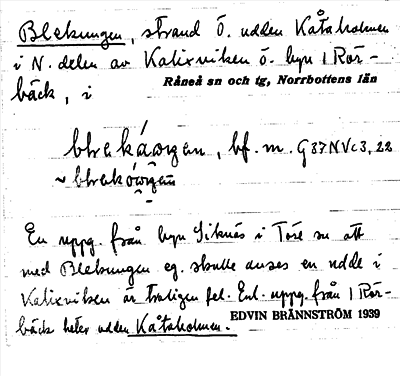 Blekungen, strand ö. udden Kåtaholmen
i N. delen av Kalixviken ö. byn 1 Rör-
Råneå sn och tg, Norrbottens län
bäck, i
bf. m. G37NVc3,22
~
En uppg. från byn Siknäs i Töre sn att
med Blekungen eg. skulle avses en udde i
Kalixviken är troligen fel. Enl. uppg. från 1 Rör-
bäck heter udden Kåtaholmen.
EDVIN BRÄNNSTRÖM 1939